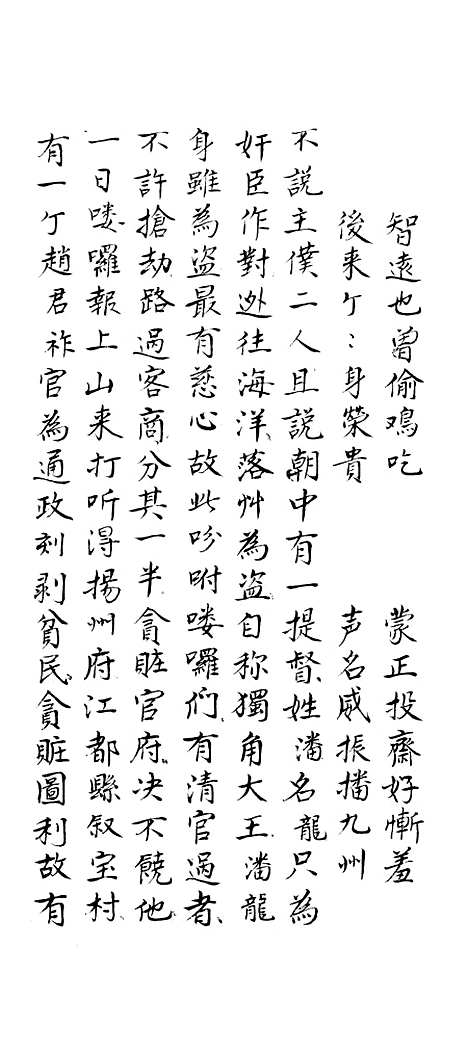 智遠也曽偷鸡吃　蒙正投齋好慚羞
後来个〻身榮貴　声名威振播九州
不說主僕二人且説朝中有一提督姓潘名龍只為
奸臣作對迯往海洋落艸為盗自称獨角大王潘龍
身雖為盗最有慈心故此吩咐喽囉們有清官過者
不許搶劫路過客商分其一半貪賍官府决不饒他
一日喽囉報上山来打听淂揚州府江都縣叙宝村
有一个趙君祚官為通政刻剥貧民貪賍圖利故有